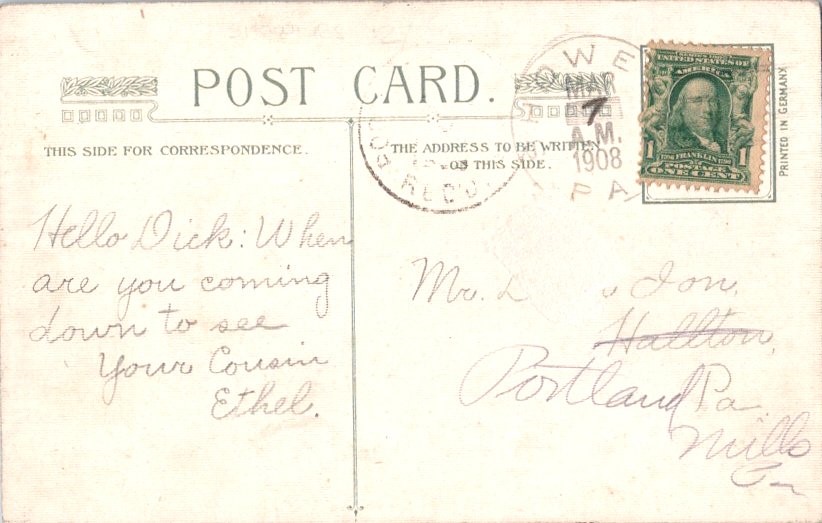 POST CARD.
THIS SIDE FOR CORRESPONDENCE.
THE ADDRESS TO BE WRITTEN
ON THIS SIDE.
REC'D.
MAR
7
A.M.
1908
PA
UNITED STATES OF
AMERICA
1 FRANKLIN 1
POSTAGE
ONE CENT
PRINTED IN GERMANY
Hello Dick: When
are you coming
down to see
Your Cousin
Ethel.
Mr.
Hallton,
Portland Pa
Mills